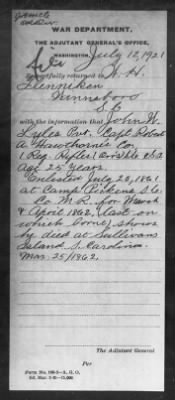 WAR DEPARTMENT,
THE ADJUTANT GENERAL'S OFFICE,
July 12, 1921
Respectfully returned to
W. H.
Flenniken
Winnsboro
S.C.
with the information that John W.
Lyles Pvt. Capt Robert
A Hawthorne Co.
1 Reg. Rifles
Age 25 years.
Enlisted July 22, 1861
at Camp Pickens S.C.
Co M.R. for March
& April 1862, (last on
which borne) shows
he died at Sullivans
Island S. Carolina.
Mar. 25/1862.
The Adjutant General
Per